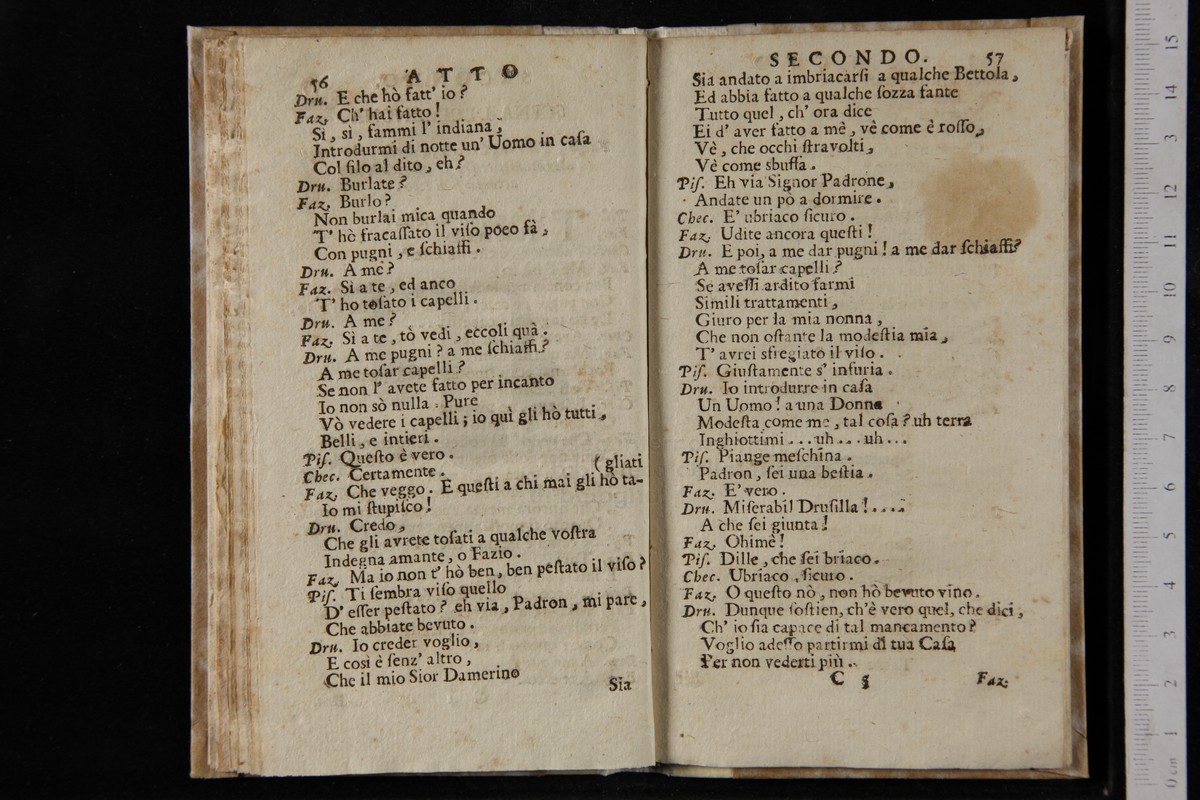 56 ATTO
Dru. E che hò fatt' io?
Faz. Ch' hai fatto!
Sì, sì, fammi l' indiana,
Introdurmi di notte un' Uomo in caſa
Col filo al dito, eh?
Dru. Burlate?
Faz. Burlo?
Non burlai mica quando
T' hò fracaſſato il viſo poco fà,
Con pugni, e ſchiaffi.
Dru. A me?
Faz. Sì a te, ed anco
T' ho toſato i capelli.
Dru. A me?
Faz. Sì a te, tò vedi, eccoli quà.
Dru. A me pugni? a me ſchiaffi?
A me toſar capelli?
Se non l' avete fatto per incanto
Io non sò nulla. Pure
Vò vedere i capelli; io quì gli hò tutti,
Belli, e intieri.
Piſ. Queſto è vero.
Chec. Certamente. (gliati
Faz. Che veggo. E queſti a chi mai gli hò ta-
Io mi ſtupiſco!
Dru. Credo,
Che gli avrete toſati a qualche voſtra
Indegna amante, o Fazio.
Faz. Ma io non t' hò ben, ben peſtato il viſo?
Piſ. Ti ſembra viſo quello
D' eſſer peſtato? eh via, Padron, mi pare,
Che abbiate bevuto.
Dru. Io creder voglio,
E così è ſenz' altro,
Che il mio Sior Damerino
Sia
SECONDO. 57
Sia andato a imbriacarſi a qualche Bettola,
Ed abbia fatto a qualche ſozza fante
Tutto quel, ch' ora dice
Ei d' aver fatto a mè, vè come è roſſo,
Vè, che occhi ſtravolti,
Vè come sbuffa.
Piſ. Eh via Signor Padrone,
Andate un pò a dormire.
Chec. E' ubriaco ſicuro.
Faz. Udite ancora queſti!
Dru. E poi, a me dar pugni! a me dar ſchiaffi?
A me toſar capelli?
Se aveſſi ardito farmi
Simili trattamenti,
Giuro per la mia nonna,
Che non oſtante la modeſtia mia,
T' avrei sfregiato il viſo.
Piſ. Giuſtamente s' infuria.
Dru. Io introdurre in caſa
Un Uomo! a una Donna
Modeſta come me, tal coſa? uh terra
Inghiottimi... uh... uh...
Piſ. Piange meſchina.
Padron, ſei una beſtia.
Faz. E' vero.
Dru. Miſerabil Druſilla!....
A che ſei giunta!
Faz. Ohimè!
Piſ. Dille, che ſei briaco.
Chec. Ubriaco, ſicuro.
Faz. O queſto nò, non hò bevuto vino.
Dru. Dunque ſoſtien, ch'è vero quel, che dici,
Ch' io ſia capace di tal mancamento?
Voglio adeſſo partirmi di tua Caſa
Per non vederti più.
C 5 Faz.